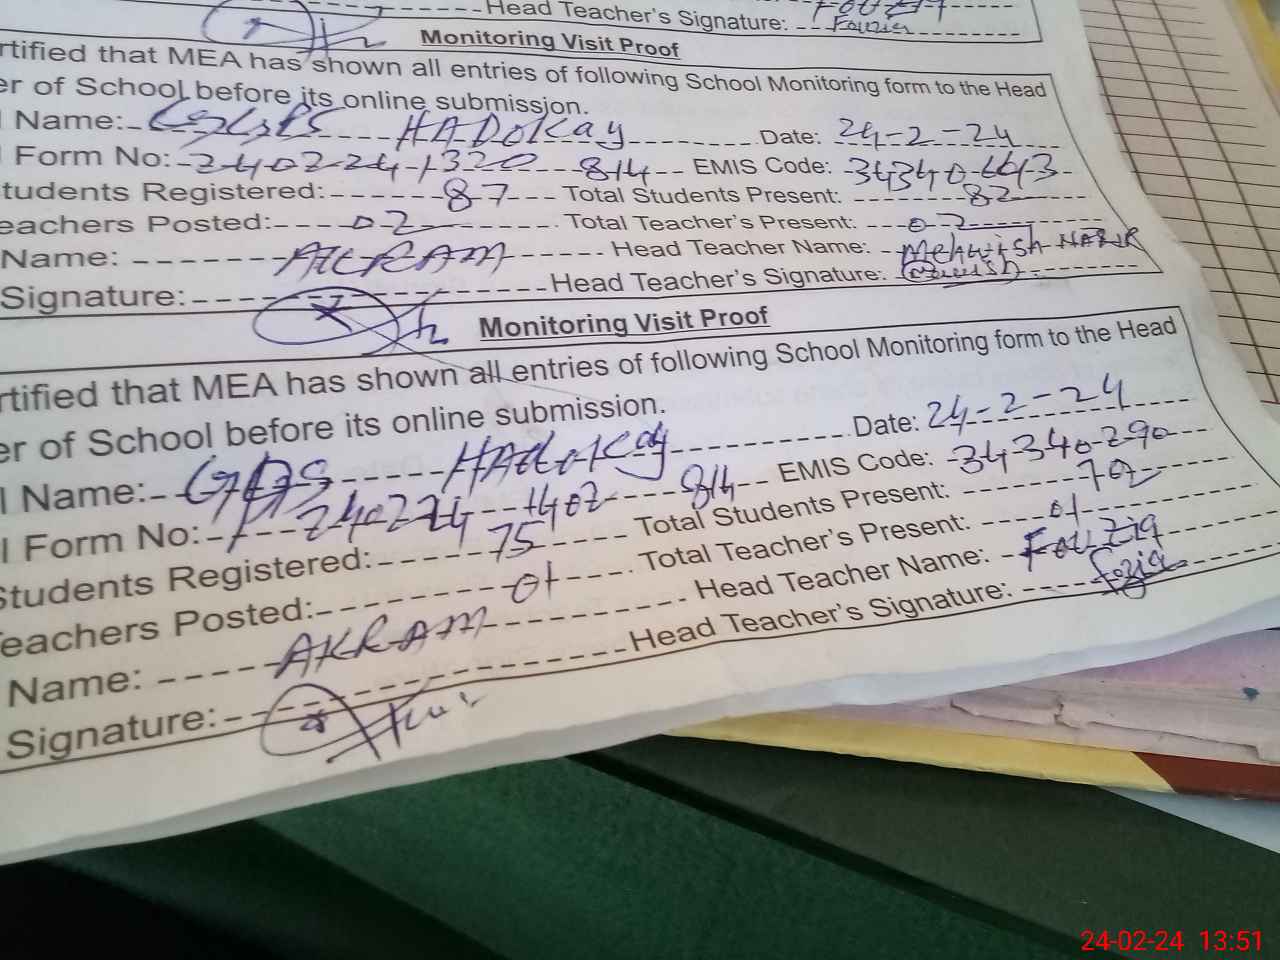 Head Teacher's Signature: Fouzia
Monitoring Visit Proof
rtified that MEA has shown all entries of following School Monitoring form to the Head
er of School before its online submission.
l Name: HADOKay Date: 24-2-24
l Form No: 2402-24-1320 814 EMIS Code: 34340-6613
tudents Registered: 87 Total Students Present: 82
eachers Posted: 02 Total Teacher's Present: 02
Name: AKRAM Head Teacher Name: Mehwish NAZIR
Signature: Head Teacher's Signature: Mewish
Monitoring Visit Proof
rtified that MEA has shown all entries of following School Monitoring form to the Head
er of School before its online submission.
l Name: HAdoKay Date: 24-2-24
l Form No: 240224 1402 814 EMIS Code: 34-340-290
Students Registered: 75 Total Students Present: 70
eachers Posted: 01 Total Teacher's Present: 01
Name: AKRAM Head Teacher Name: Fouzia
Signature: Head Teacher's Signature: Fozia
24-02-24 13:51